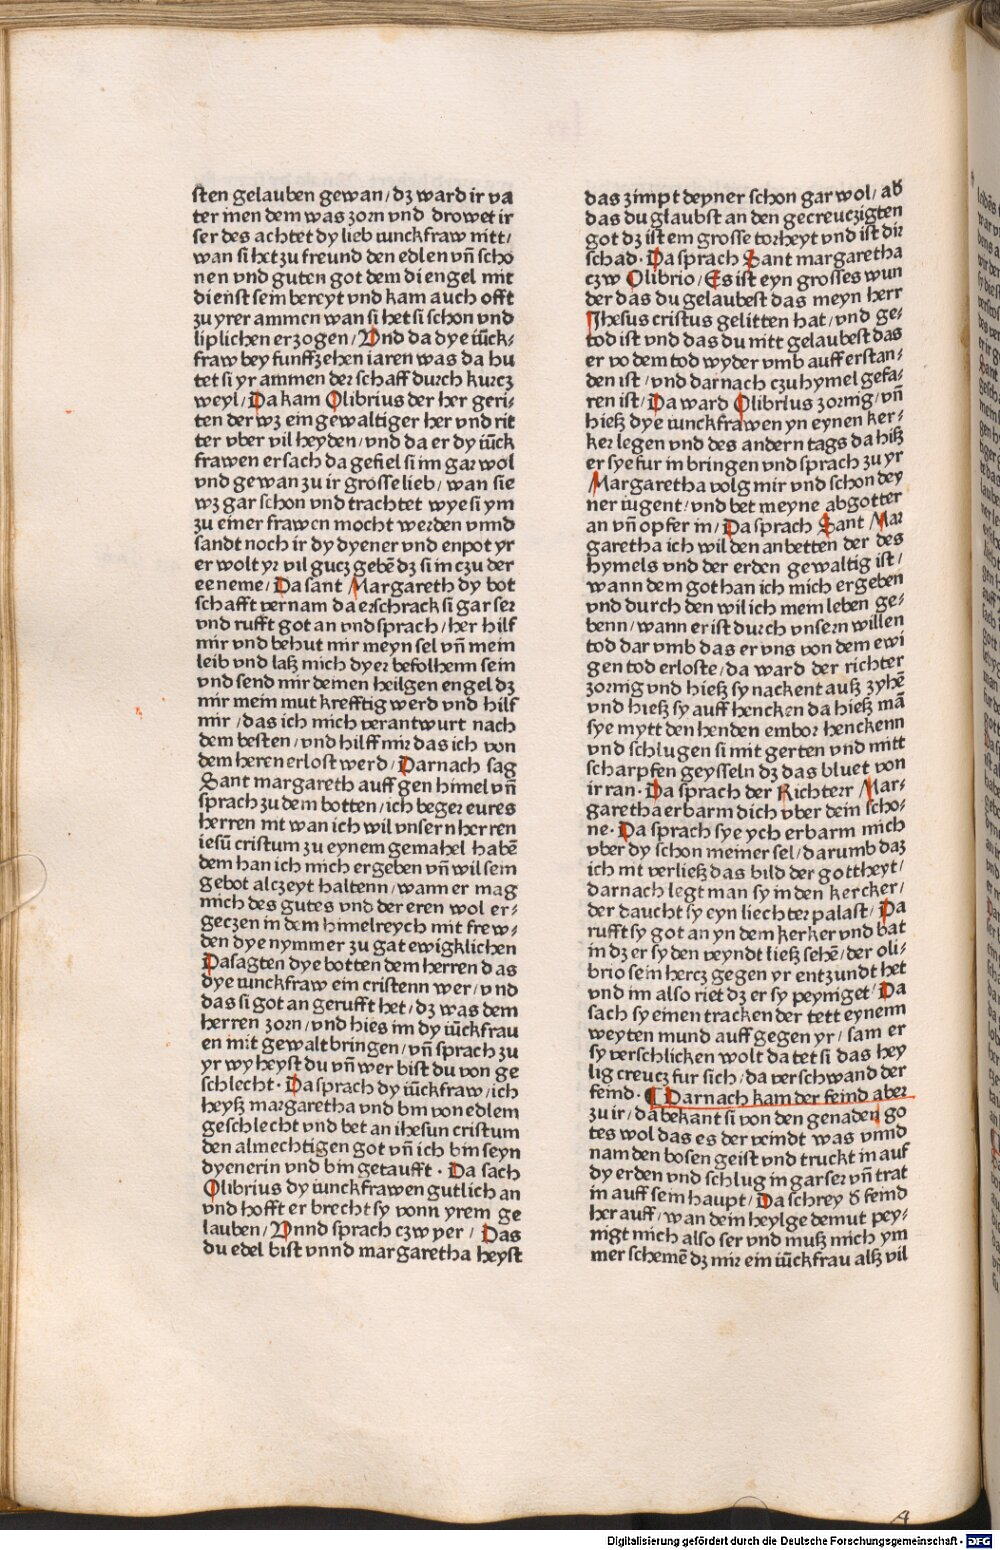 sten gelauben gewan/dz ward ir va
ter inen dem was zorn vnd drowet ir
ser des achtet dy lieb iunckfraw nitt/
wan si het zu freund den edlen vn̄ scho
nen vnd guten got dem di engel mit
dienst sein bereyt vnd kam auch offt
zu yrer ammen wan si het si schon vnd
liplichen erzogen/Vnd da dye iūck⸗
fraw bey funffzehen iaren was da hu
tet si yr ammen der schaff durch kurcz
weyl/Da kam Olibrius der her geri⸗
ten der wz ein gewaltiger her vnd rit
ter vber vil heyden/vnd da er dy iūck
frawen ersach da gefiel si im gar wol
vnd gewan zu ir grosse lieb/wan sie
wz gar schon vnd trachtet wye si ym
zu einer frawen mocht werden vnnd
sandt noch ir dy dyener vnd enpot yr
er wolt yr vil gucz gebē dz si in czu der
ee neme/Da sant Margareth dy bot
schafft vernam da erschrack si gar ser
vnd rufft got an vnd sprach/her hilf
mir vnd behut mir meyn sel vn̄ mein
leib vnd laß mich dyer befolhenn sein
vnd send mir deinen heilgen engel dz
mir mein mut krefftig werd vnd hilf
mir/das ich mich verantwurt nach
dem besten/vnd hilff mir das ich von
dem heren erlost werd/Darnach sag
Sant margareth auff gen himel vn̄
sprach zu dem botten/ich beger eures
herren nit wan ich wil vnsern herren
iesū cristum zu eynem gemahel habē
dem han ich mich ergeben vn̄ wil sein
gebot alczeyt haltenn/wann er mag
mich des gutes vnd der eren wol er⸗
geczen in dem himelreych mit frew⸗
den dye nymmer zu gat ewigklichen
Da sagten dye botten dem herren das
dye iunckfraw ein cristenn wer/vnd
das si got an gerufft het/dz was dem
herren zorn/vnd hies im dy iūckfrau
en mit gewalt bringen/vn̄ sprach zu
yr wy heyst du vn̄ wer bist du von ge
schlecht·Da sprach dy iūckfraw/ich
heyß margaretha vnd bin von edlem
geschlecht vnd bet an ihesun cristum
den almechtigen got vn̄ ich bin seyn
dyenerin vnd bin getaufft·Da sach
Olibrius dy iunckfrawen gutlich an
vnd hofft er brecht sy vonn yrem ge
lauben/Vnnd sprach czw yer/Das
du edel bist vnnd margaretha heyst
das zimpt deyner schon gar wol/ab
das du glaubst an den gecreuczigten
got dz ist ein grosse torheyt vnd ist dir
schad·Da sprach Sant margaretha
czw Olibrio/Es ist eyn grosses wun
der das du gelaubest das meyn herr
Jhesus cristus gelitten hat/vnd ge⸗
tod ist vnd das du nitt gelaubest das
er vo dem tod wyder vmb auff erstan⸗
den ist/vnd darnach czu hymel gefa⸗
ren ist/Da ward Olibrius zornig/vn̄
hieß dye iunckfrawen yn eynen ker⸗
ker legen vnd des andern tags da hiß
er sye fur in bringen vnd sprach zu yr
Margaretha volg mir vnd schon dey
ner iugent/vnd bet meyne abgotter
an vn̄ opfer in/Da sprach Sant Mar
garetha ich wil den anbetten der des
hymels vnd der erden gewaltig ist/
wann dem got han ich mich ergeben
vnd durch den wil ich mein leben ge⸗
benn/wann er ist durch vnsern willen
tod dar vmb das er vns von dem ewi
gen tod erloste/da ward der richter
zornig vnd hieß sy nackent auß zyhē
vnd hieß sy auff hencken da hieß mā
sye mytt den henden embor henckenn
vnd schlugen si mit gerten vnd mitt
scharpfen geysseln dz das bluet von
ir ran·Da sprach der Richterr Mar⸗
garetha erbarm dich vber dein scho⸗
ne·Da sprach sye ych erbarm mich
vber dy schon meiner sel/darumb daz
ich nit verließ das bild der gottheyt/
darnach legt man sy in den kercker/
der daucht sy eyn liechter palast/Da
rufft sy got an yn dem kerker vnd bat
in dz er sy den veyndt ließ sehē/der oli⸗
brio sein hercz gegen yr entzundt het
vnd im also riet dz er sy peyniget/Da
sach sy einen tracken der tett eynenn
weyten mund auff gegen yr/sam er
sy verschlicken wolt da tet si das hey
lig creucz fur sich/da verschwand der
feind·¶Darnach kam der feind aber
zu ir/da bekant si von den genaden go
tes wol das es der veindt was vnnd
nam den bosen geist vnd truckt in auf
dy erden vnd schlug in gar ser vn̄ trat
in auff sein haupt/Da schrey d̄ feind
her auff/wan dein heylge demut pey⸗
nigt mich also ser vnd muß mich ym
mer schemē dz mir ein iūckfrau alß vil
Digitalisierung gefördert durch die Deutsche Forschungsgemeinschaft - DFG